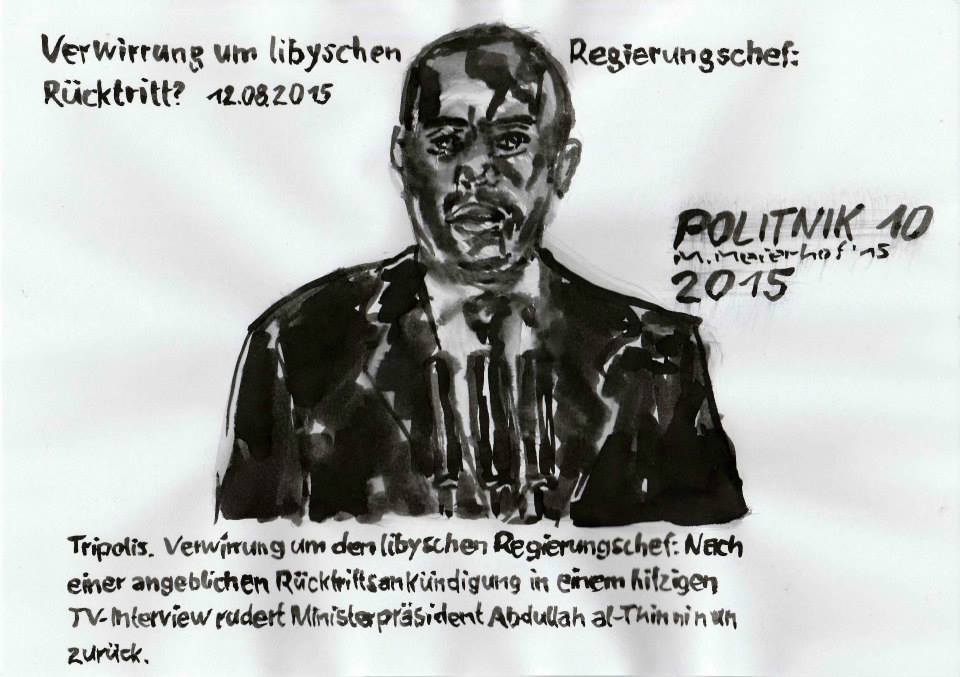 Verwirrung um libyschen Regierungschef:
Rücktritt? 12.08.2015
POLITNIK 10
M. Maierhof '15
2015
Tripolis. Verwirrung um den libyschen Regierungschef: Nach
einer angeblichen Rücktrittsankündigung in einem hitzigen
TV-Interview rudert Ministerpräsident Abdullah al-Thinni nun
zurück.